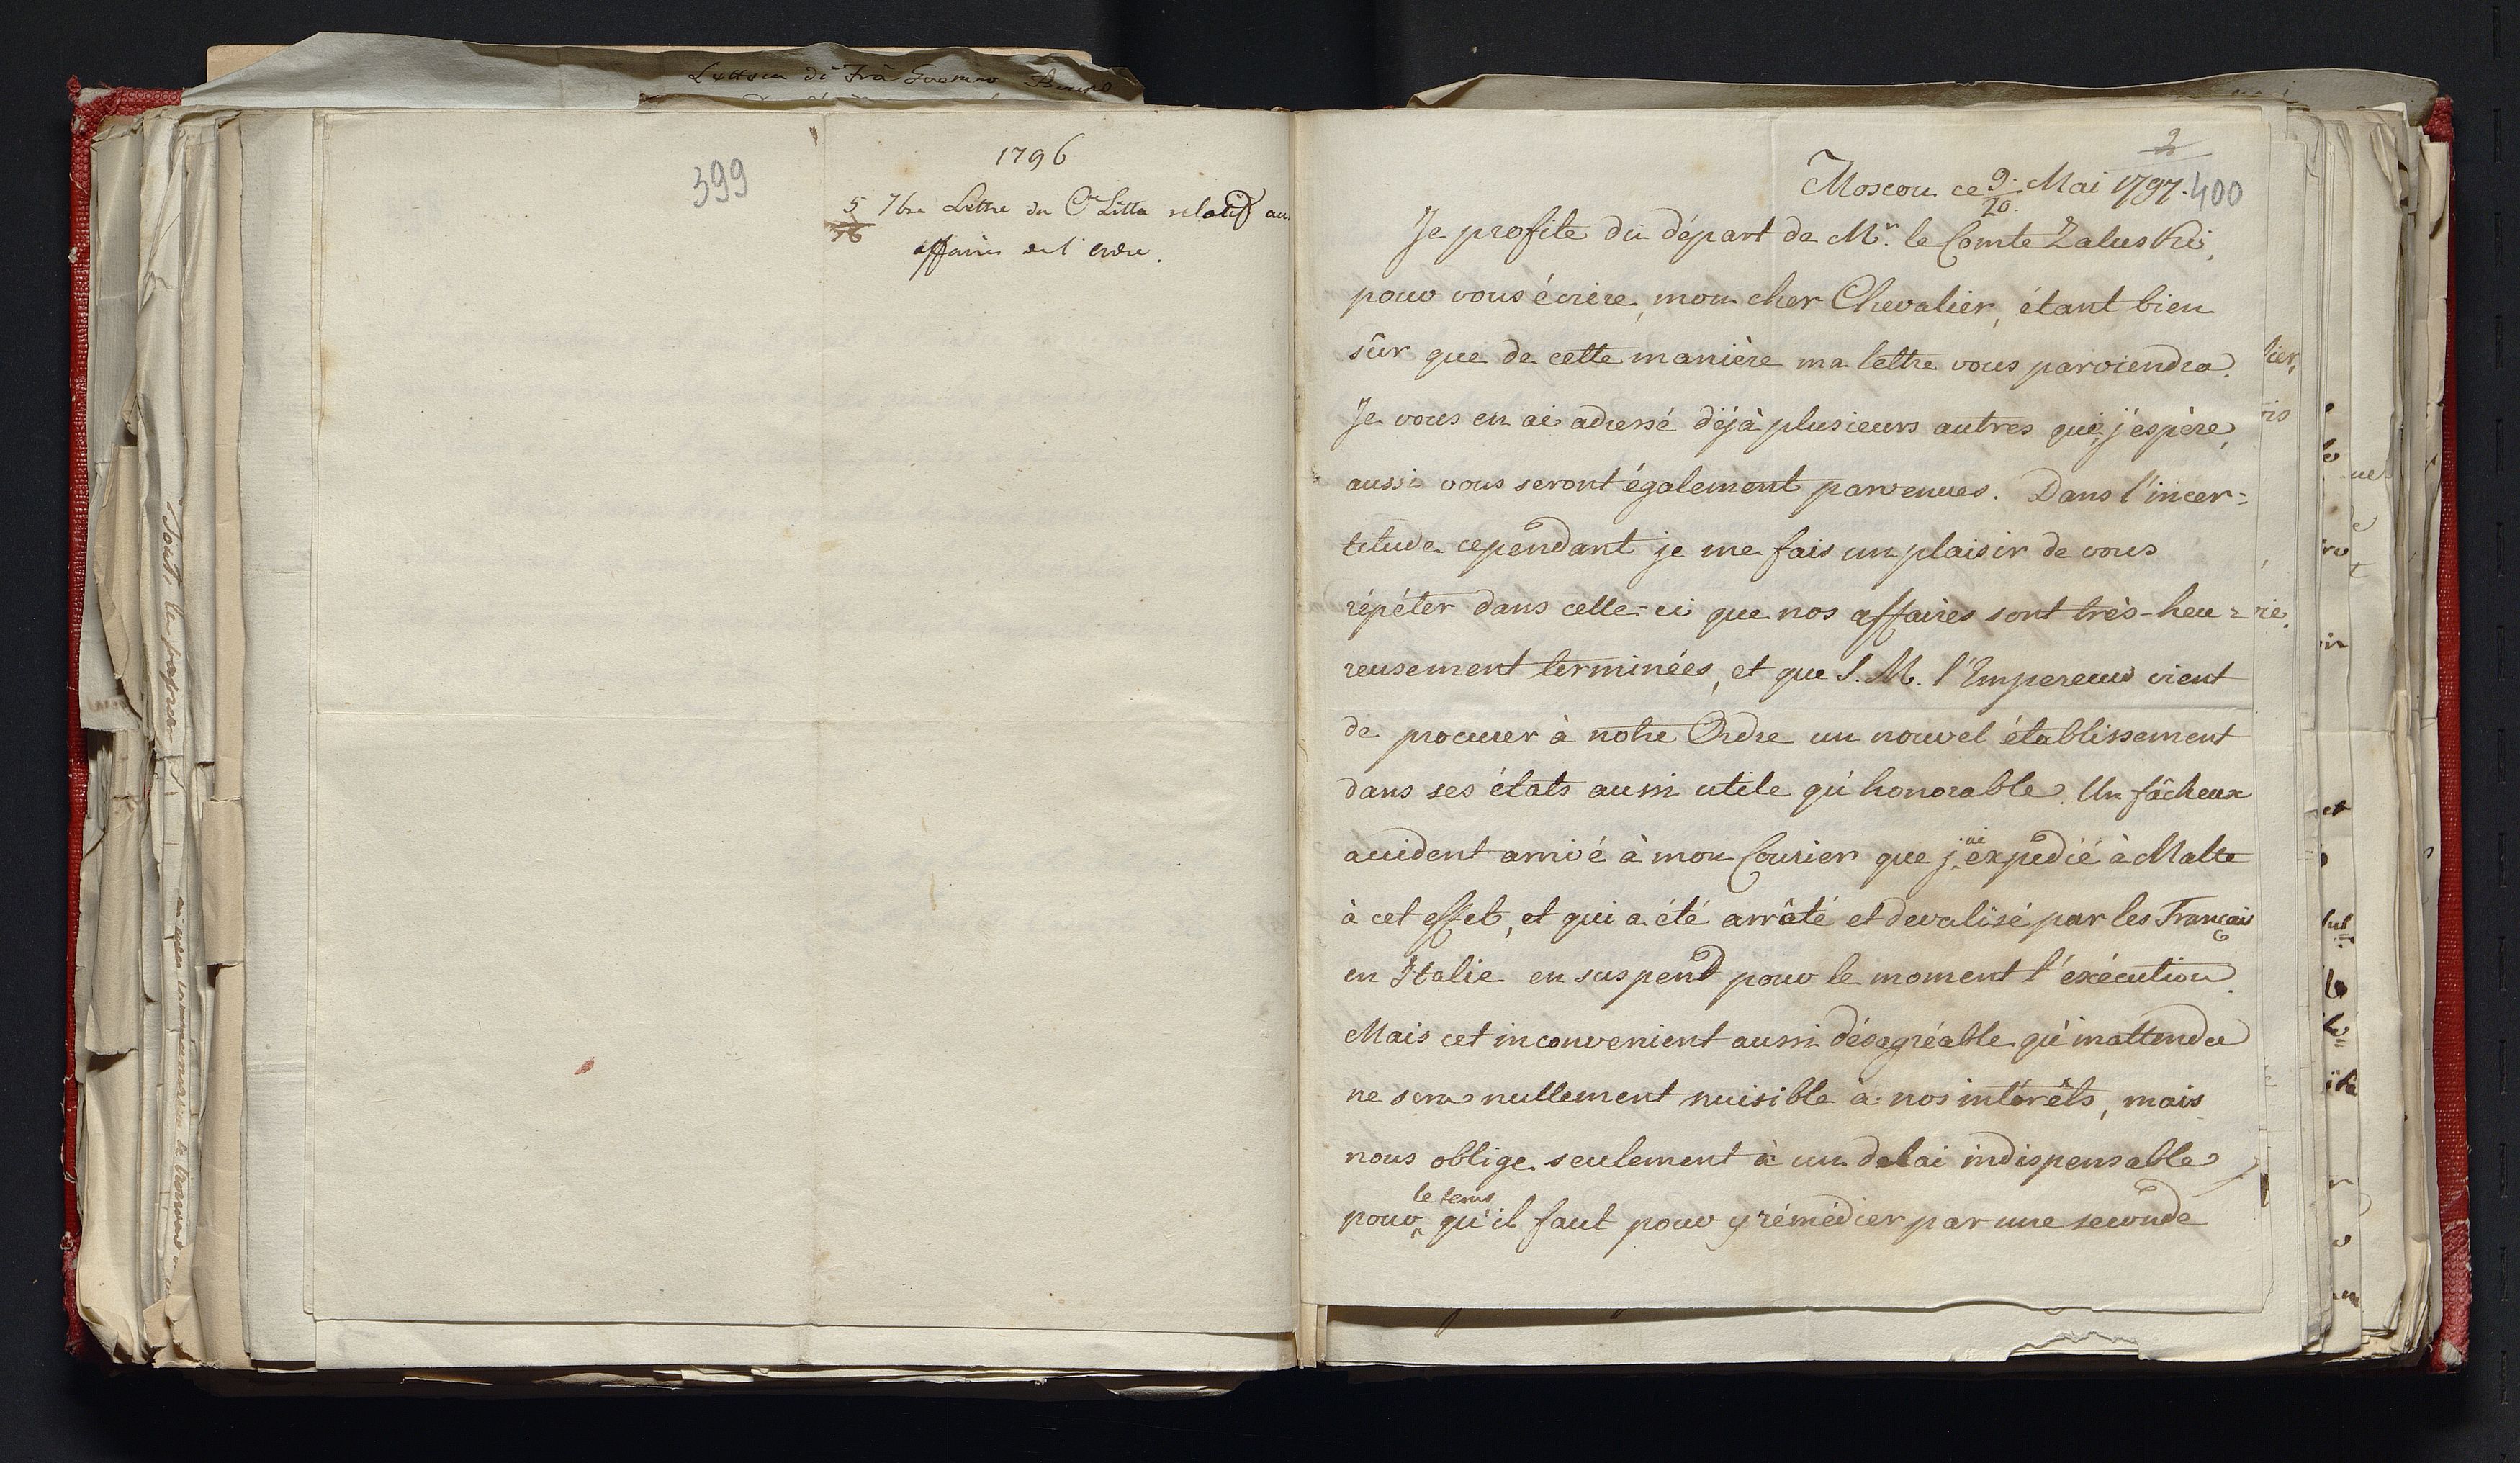 Lettera di Frà
399
1796
5/16 7bre Lettre du Cte Litta relatif au
affaires de l'ordre.
2
Moscou ce 9/20 Mai 1797. 400
Je profite du départ de Mr. le Comte Zaluski,
pour vous écrire, mon cher Chevalier, étant bien
sûr que de cette manière ma lettre vous parviendra.
Je vous en ai adressé déjà plusieurs autres qui, j'espère,
aussi vous seront également parvenues. Dans l'incer=
titude cependant je me fais un plaisir de vous
répéter dans celle-ci que nos affaires sont très-heu=
reusement terminées, et que S. M. l'Empereur vient
de procurer à notre Ordre un nouvel établissement
dans ses états aussi utile qu'honorable. Un fâcheux
accident arrivé à mon Courier que j'ai expedié à Malte
à cet effet, et qui a été arrêté et devalisé par les Français
en Italie en suspend pour le moment l'exécution.
Mais cet inconvenient aussi désagréable qu'inattendu
ne sera nullement nuisible à nos intérêts, mais
nous oblige seulement à un delai indispensable
pour le tems qu'il faut pour y rémédier par une seconde